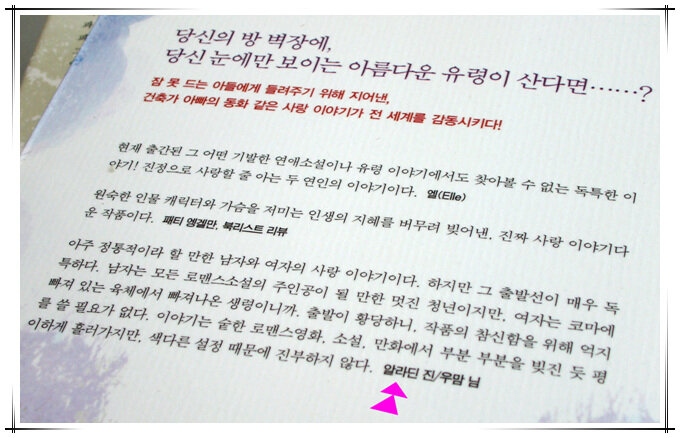 당신의 방 벽장에,
당신 눈에만 보이는 아름다운 유령이 산다면……?
잠 못 드는 아들에게 들려주기 위해 지어낸,
건축가 아빠의 동화 같은 사랑 이야기가 전 세계를 감동시키다!
현재 출간된 그 어떤 기발한 연애소설이나 유령 이야기에서도 찾아볼 수 없는 독특한 이
야기! 진정으로 사랑할 줄 아는 두 연인의 이야기이다. 엘(Elle)
원숙한 인물 캐릭터와 가슴을 저미는 인생의 지혜를 버무려 빚어낸, 진짜 사랑 이야기다
운 작품이다. 패티 엥겔만, 북리스트 리뷰
아주 정통적이라 할 만한 남자와 여자의 사랑 이야기이다. 하지만 그 출발선이 매우 독
특하다. 남자는 모든 로맨스소설의 주인공이 될 만한 멋진 청년이지만, 여자는 코마에
빠져 있는 육체에서 빠져나온 생령이니까. 출발이 황당하니, 작품의 참신함을 위해 억지
를 쓸 필요가 없다. 이야기는 숱한 로맨스영화, 소설, 만화에서 부분 부분을 빚진 듯 평
이하게 흘러가지만, 색다른 설정 때문에 진부하지 않다. 알라딘 진/우맘 님